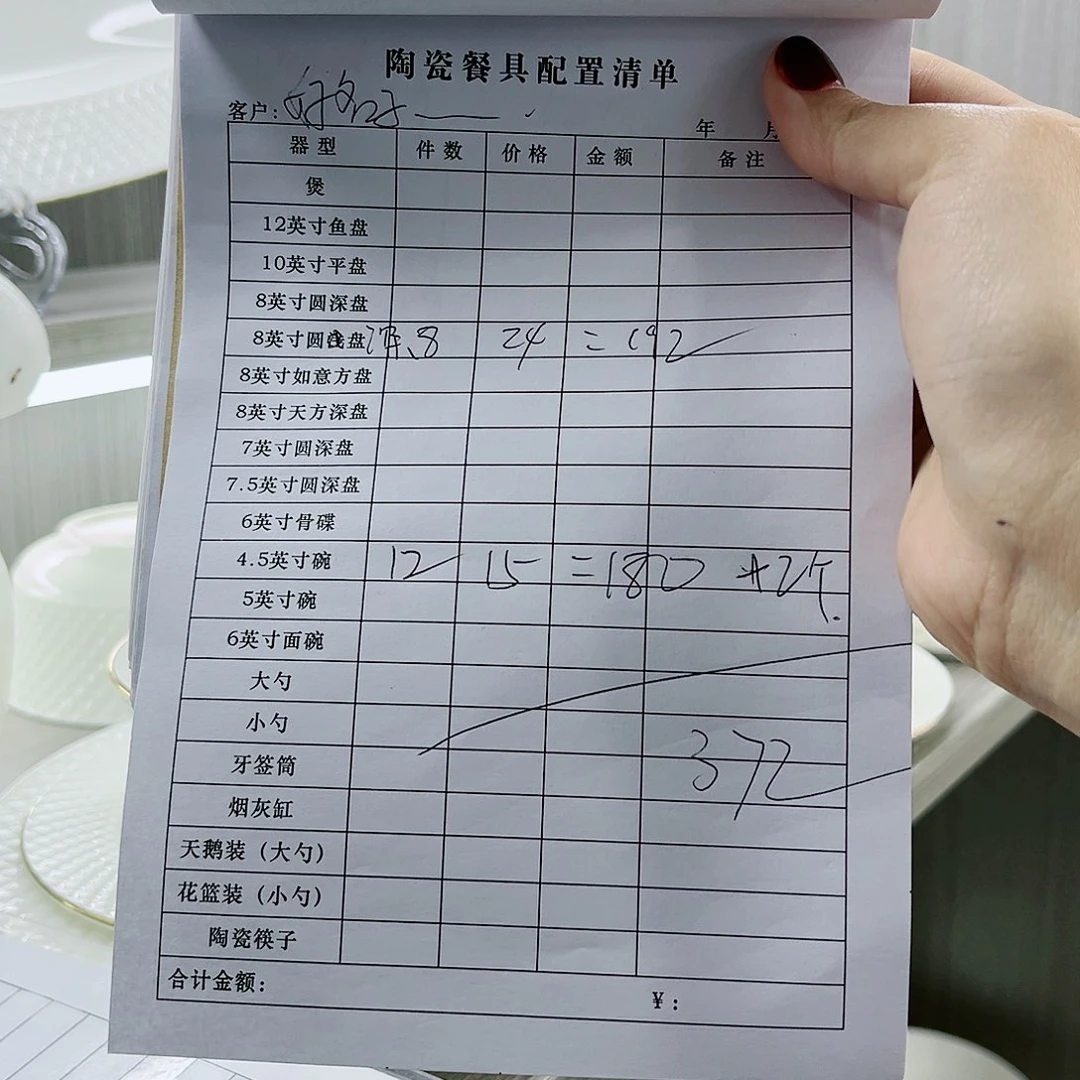 陶瓷餐具配置清单
客户:
年 月
器型 件数 价格 金额 备注
煲
12英寸鱼盘
10英寸平盘
8英寸圆深盘
8英寸圆浅盘 8 24 =192
8英寸如意方盘
8英寸天方深盘
7英寸圆深盘
7.5英寸圆深盘
6英寸骨碟
4.5英寸碗 12 15 =180 +2个.
5英寸碗
6英寸面碗
大勺
小勺
牙签筒 372
烟灰缸
天鹅装（大勺）
花篮装（小勺）
陶瓷筷子
合计金额: ¥: